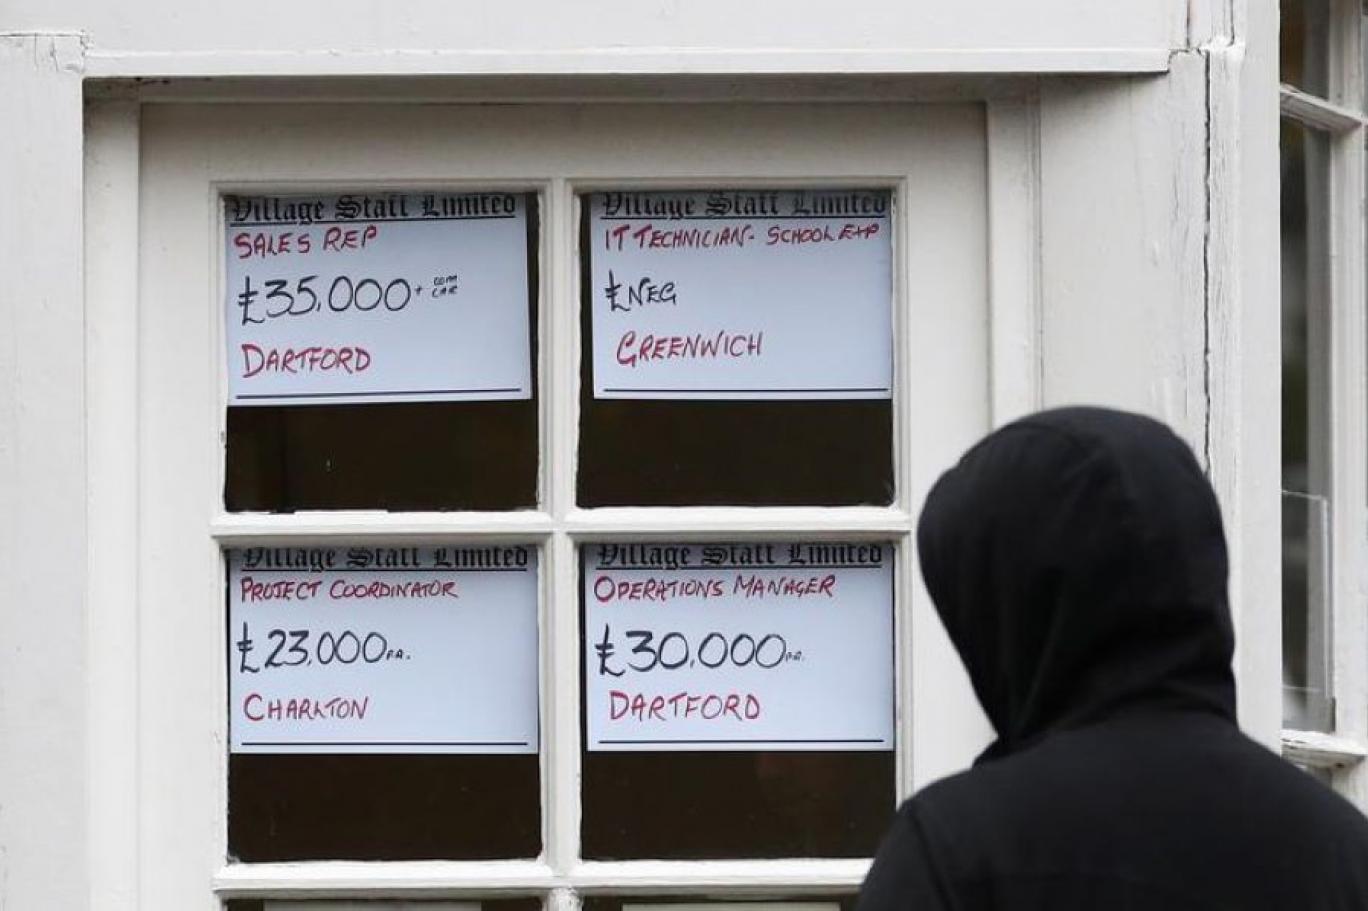 Village Staff Limited
SALES REP
£35,000 + COM
CAR
DARTFORD
Village Staff Limited
IT TECHNICIAN - SCHOOL EXP
£NEG
GREENWICH
Village Staff Limited
PROJECT COORDINATOR
£23,000 P.A.
CHARLTON
Village Staff Limited
OPERATIONS MANAGER
£30,000 P.A.
DARTFORD